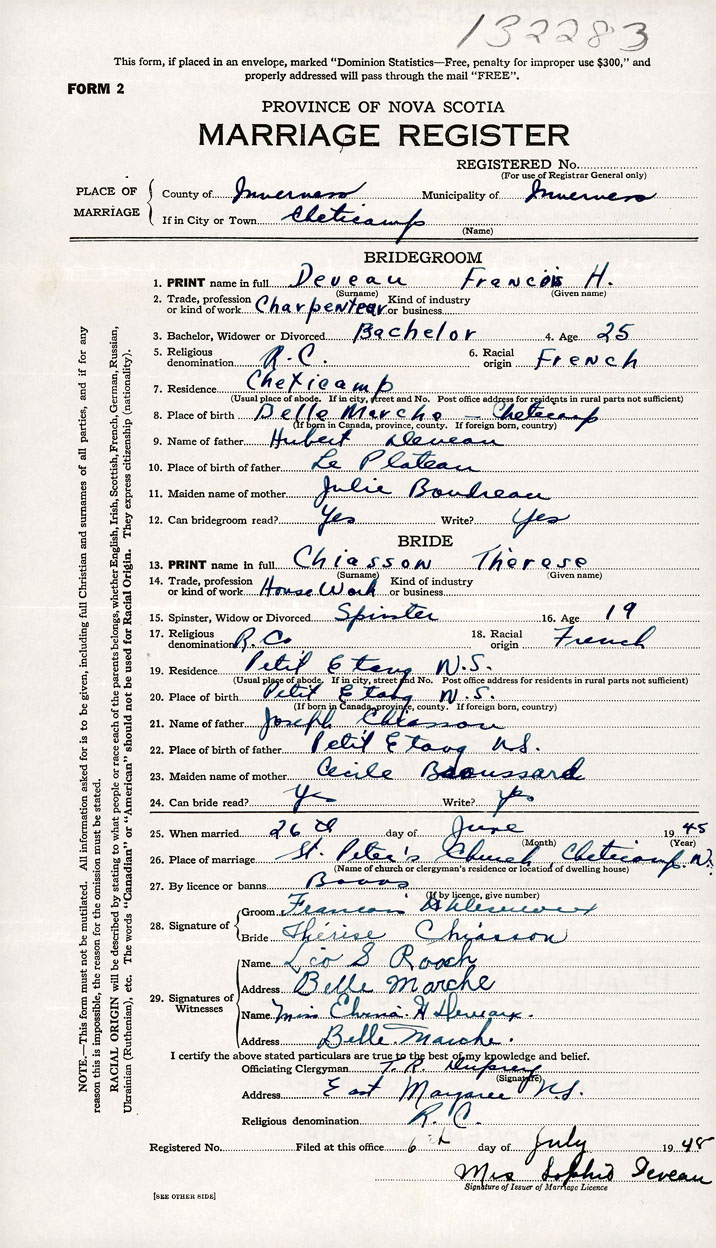 132283
This form, if placed in an envelope, marked "Dominion Statistics—Free, penalty for improper use $300," and
properly addressed will pass through the mail "FREE".
FORM 2
PROVINCE OF NOVA SCOTIA
MARRIAGE REGISTER
REGISTERED No.
(For use of Registrar General only)
PLACE OF MARRIAGE
County of Inverness Municipality of Inverness
If in City or Town Cheticamp
(Name)
BRIDEGROOM
1. PRINT name in full Deveau Francois H.
(Surname) (Given name)
2. Trade, profession or kind of work Charpentear Kind of industry or business
3. Bachelor, Widower or Divorced Bachelor 4. Age 25
5. Religious denomination R.C. 6. Racial origin French
7. Residence Cheticamp
(Usual place of abode. If in city, street and No. Post office address for residents in rural parts not sufficient)
8. Place of birth Belle Marche — Cheticamp
(If born in Canada, province, county. If foreign born, country)
9. Name of father Hubert Deveau
10. Place of birth of father Le Plateau
11. Maiden name of mother Julie Boudreau
12. Can bridegroom read? Yes Write? Yes
BRIDE
13. PRINT name in full Chiasson Therese
(Surname) (Given name)
14. Trade, profession or kind of work House Work Kind of industry or business
15. Spinster, Widow or Divorced Spinster 16. Age 19
17. Religious denomination R.C. 18. Racial origin French
19. Residence Petit Etang N.S.
(Usual place of abode. If in city, street and No. Post office address for residents in rural parts not sufficient)
20. Place of birth Petit Etang N.S.
(If born in Canada, province, county. If foreign born, country)
21. Name of father Joseph Chiasson
22. Place of birth of father Petit Etang N.S.
23. Maiden name of mother Cecile Broussard
24. Can bride read? Yes Write? Yes
25. When married 26th day of June 1945
(Month) (Year)
26. Place of marriage St. Peter's Church, Cheticamp, N.
(Name of church or clergyman's residence or location of dwelling house)
27. By licence or banns Banns
(If by licence, give number)
28. Signature of
Groom Francois
Bride Thérèse Chiasson
29. Signatures of Witnesses
Name Leo S Roach
Address Belle Marche
Name Miss H Deveaux.
Address Belle Marche.
I certify the above stated particulars are true to the best of my knowledge and belief.
Officiating Clergyman
(Signature)
Address East Margaree N.S.
Religious denomination R.C.
Registered No. Filed at this office 6th day of July 1945
Mrs Sophie Deveau
Signature of Issuer of Marriage Licence
[SEE OTHER SIDE]
NOTE.—This form must not be mutilated. All information asked for is to be given, including full Christian and surnames of all parties, and if for any
reason this is impossible, the reason for the omission must be stated.
RACIAL ORIGIN will be described by stating to what people or race each of the parents belongs, whether English, Irish, Scottish, French, German, Russian,
Ukrainian (Ruthenian), etc. The words "Canadian" or "American" should not be used for Racial Origin. They express citizenship (nationality).